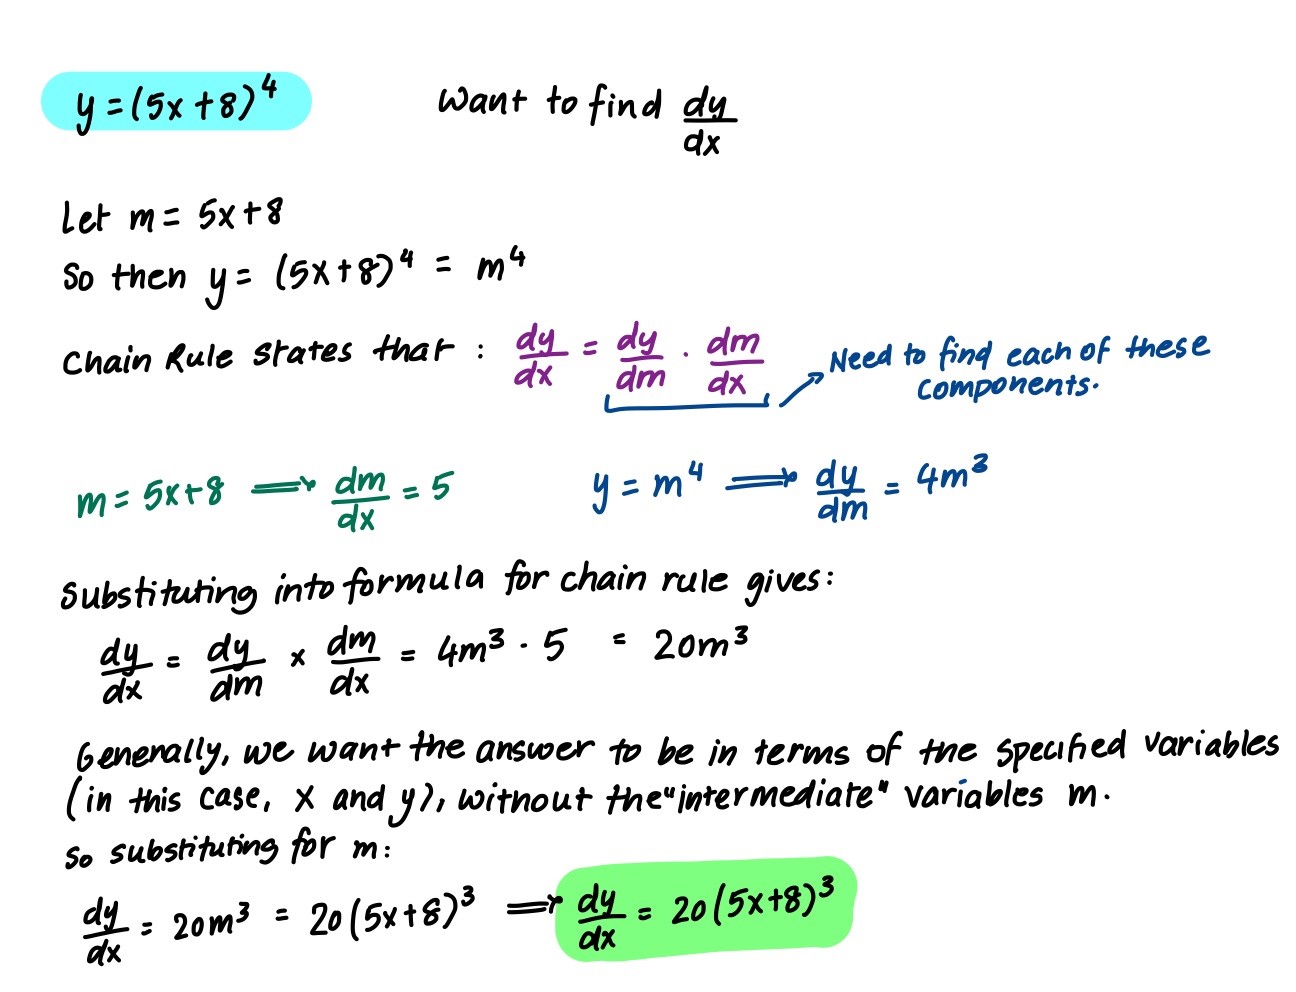 y = (5x + 8)⁴ Want to find dy/dx
Let m = 5x + 8
So then y = (5x + 8)⁴ = m⁴
Chain Rule states that : dy/dx = dy/dm · dm/dx Need to find each of these
components.
m = 5x + 8 ⟹ dm/dx = 5 y = m⁴ ⟹ dy/dm = 4m³
Substituting into formula for chain rule gives:
dy/dx = dy/dm × dm/dx = 4m³ · 5 = 20m³
Generally, we want the answer to be in terms of the specified variables
(in this case, x and y), without the "intermediate" variables m.
So substituting for m:
dy/dx = 20m³ = 20(5x+8)³ ⟹ dy/dx = 20(5x+8)³